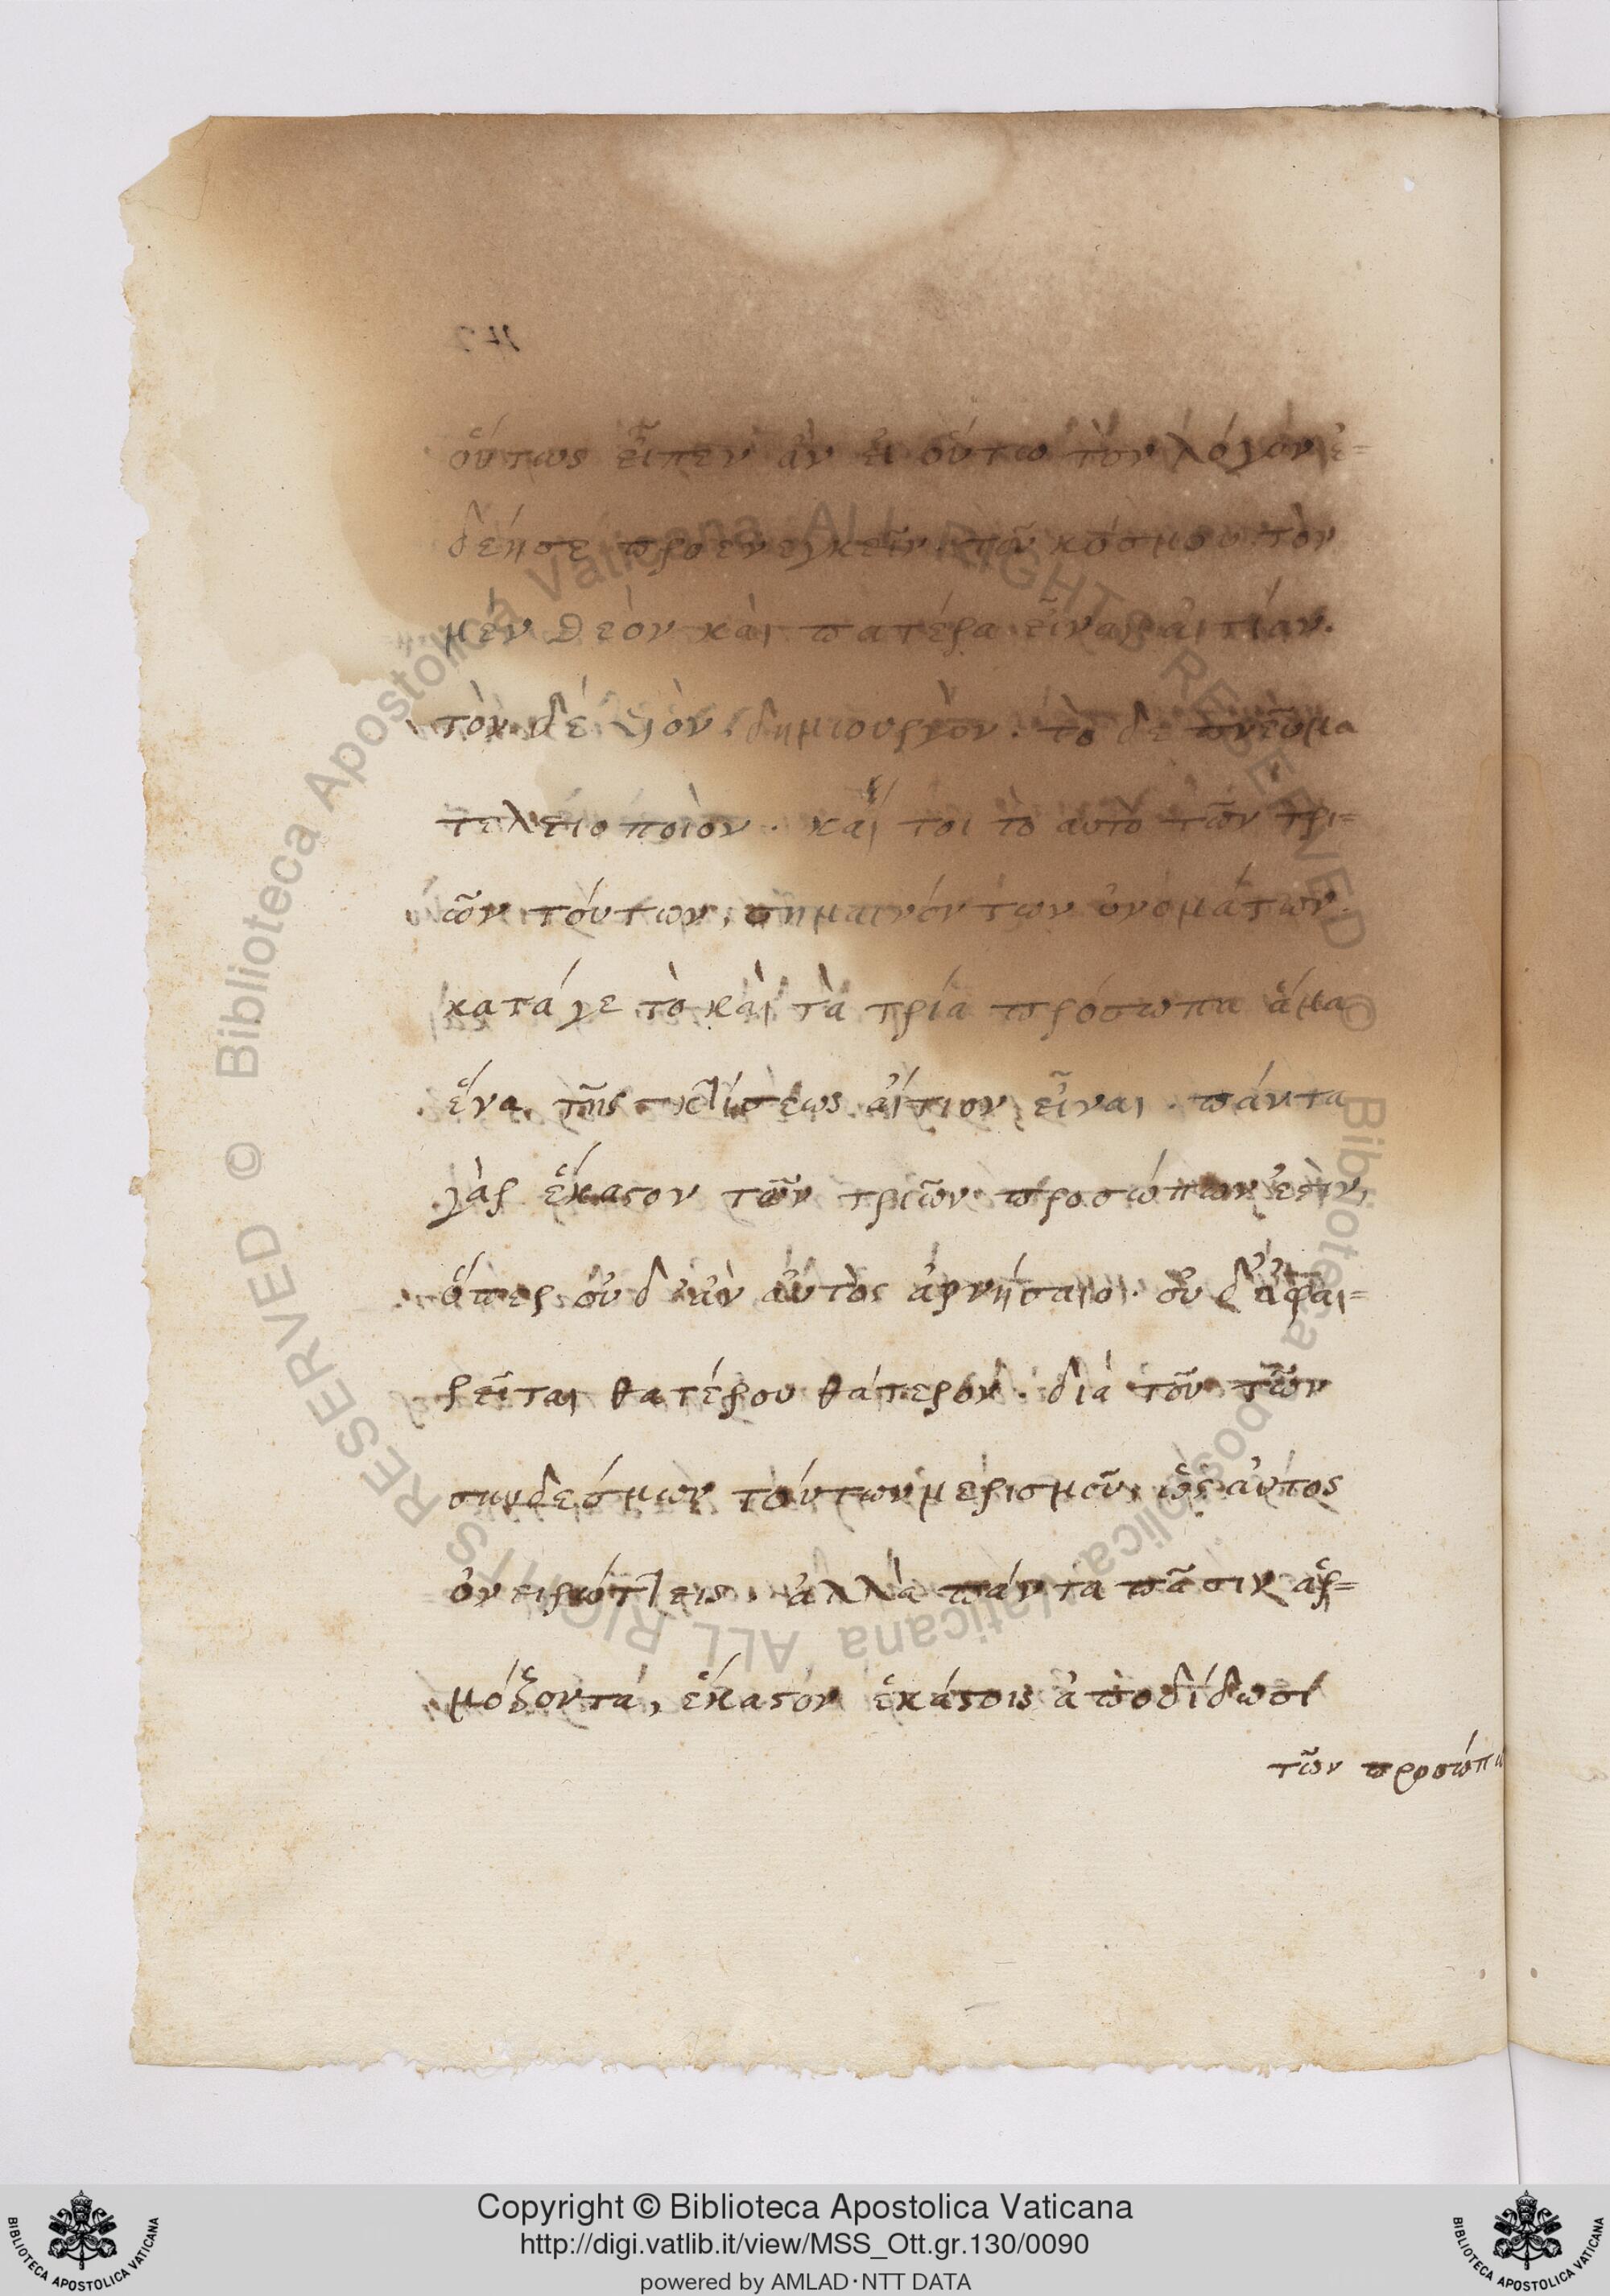 οὕτως εἶπεν ἂν εἰ οὕτω τὸν λόγον ἐ=
δέησε προενεγκεῖν. τοῦ κόσμου τὸν
μὲν Θεὸν καὶ πατέρα εἶναι αἰτίαν.
τὸν δὲ ὑιὸν δημιουργὸν. τὸ δε πνεῦμα
τελειοποιὸν. καί τοι τὸ αυτὸ τῶν τρι=
ῶν τόυτων, σημαινόντων ὀνομάτων.
κατά γε τὸ καὶ τὰ τρία πρόσωπα ἅμα
ἕνα τῆς κτίσεως ἀίτιον εἶναι. πάντα
γὰρ ἕκαστον τῶν τριῶν προσώπων ἐστὶν,
ὅπερ ὀυδ' ἂν ἀυτὸς ἀρνήσαιο. οὐδ' ἀφαι=
ρεῖται θατέρου θάτερον. διὰ τοῦ τῶν
συνδέσμων τόυτων μερισμοῦ, ὡς ἀυτος
ὀνειρώττεις. ἀλλὰ πάντα πᾶσιν ἁρ=
μόζοντα, ἕκαστον ἑκάστοις ἀποδίδωσι
τῶν προσώπω
Copyright © Biblioteca Apostolica Vaticana
http://digi.vatlib.it/view/MSS_Ott.gr.130/0090
powered by AMLAD·NTT DATA
BIBLIOTECA APOSTOLICA VATICANA
BIBLIOTECA APOSTOLICA VATICANA
© Biblioteca Apostolica Vaticana ALL RIGHTS RESERVED © Biblioteca Apostolica Vaticana ALL RIGHTS RESERVED